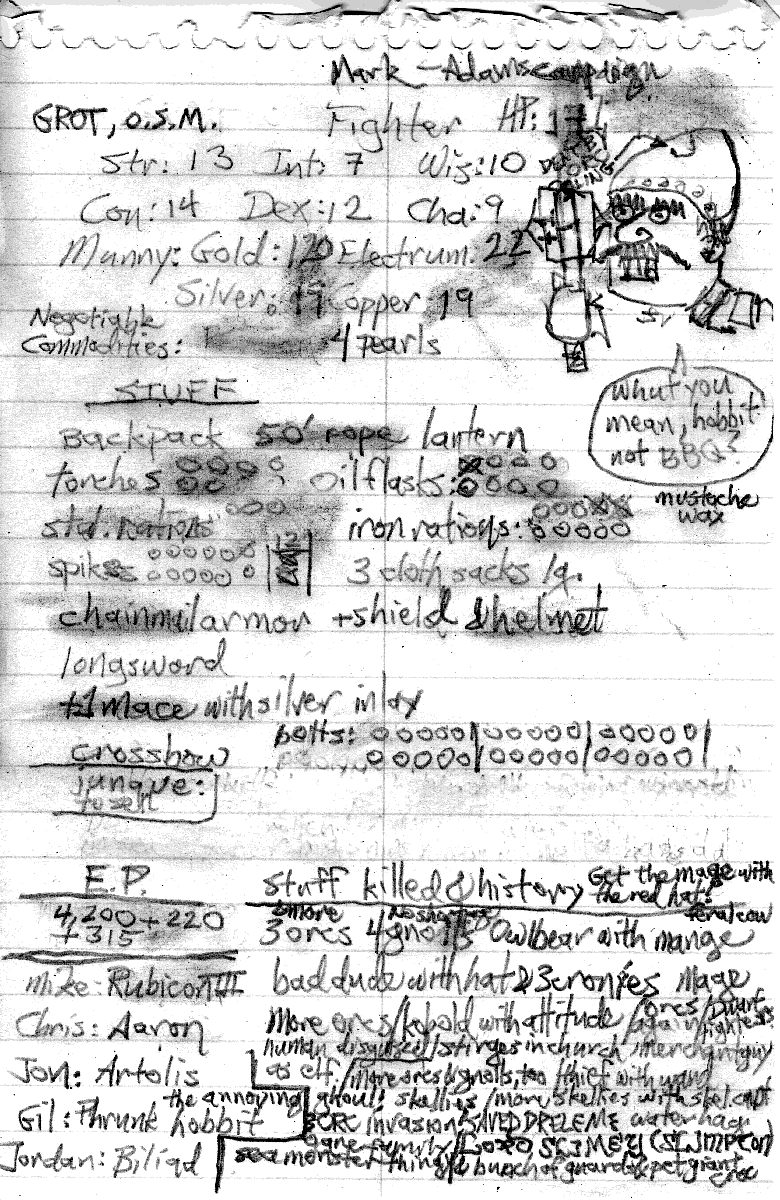 Mark - Adams campaign
GROT, O.S.M. Fighter HP:
Str: 13 Int: 7 Wis: 10
Con: 14 Dex: 12 Cha: 9
Munny: Gold: 120 Electrum: 22
Silver: 19 Copper 19
Negotiable
Commodities: 4 pearls
STUFF
Backpack 50' rope lantern
torches oil flasks:
std. rations iron rations:
spikes 12 3 cloth sacks lg.
chainmail armor + shield & helmet
longsword
+1 mace with silver inlay
crossbow bolts:
junque:
to sell
what you
mean, hobbit
not BBQ?
mustache
wax
E.P. Stuff killed & history Get the mage with
the red hat!
4,200 + 220
+ 315
3 orcs 4 gnolls Owlbear with mange
feral cow
Mike: Rubicon III bad dude with hat & 3 cronies Mage
Chris: Aaron More orcs/kobold with attitude /orcs/
human disguised /stirges in church merchant guy
Jon: Artolis as elf /more orcs/gnolls, too thief with wand
the annoying ghoul skellies /more skellies with
Gil: Thrunk hobbit ORC invasion SAVED water
Jordan: Biliad sea monster thing a bunch of guards & pet giant
croc